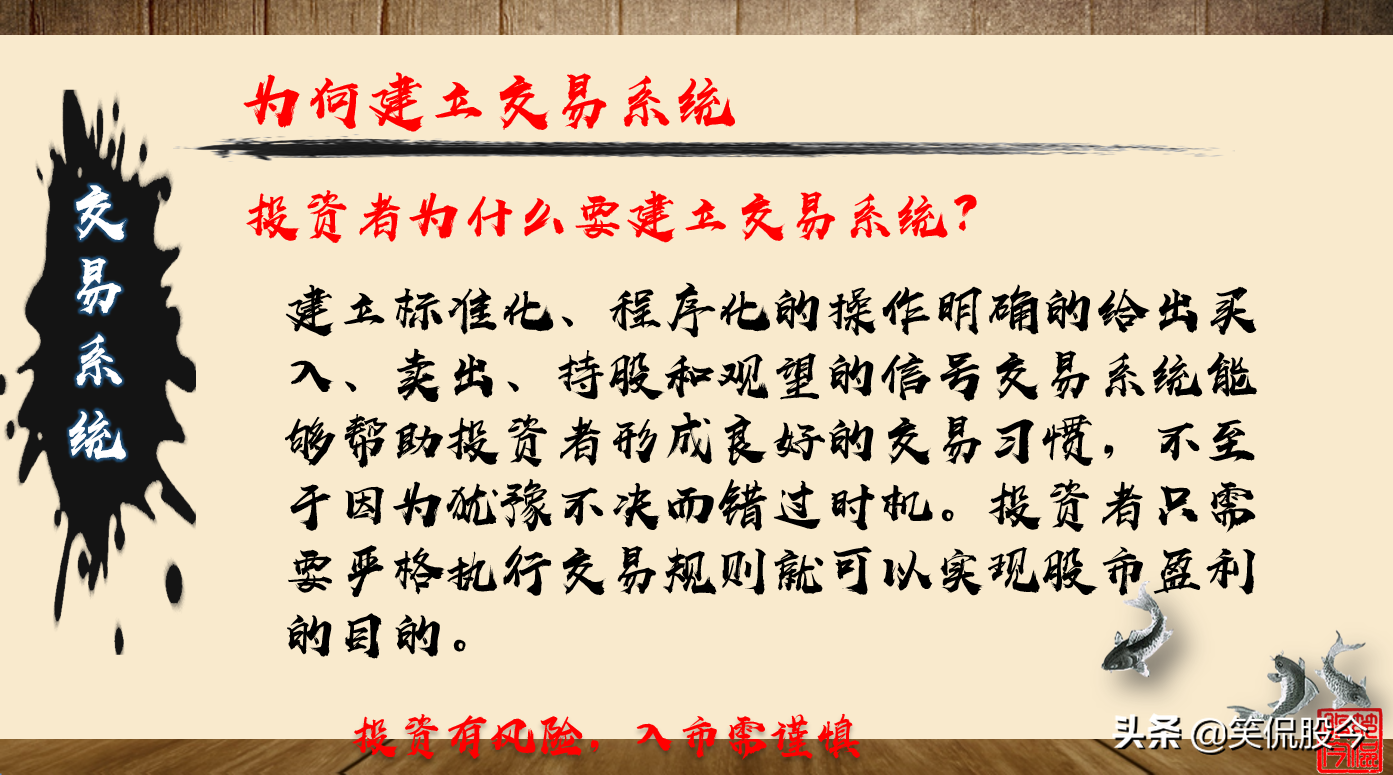 为何建立交易系统
交易系统
投资者为什么要建立交易系统?
建立标准化、程序化的操作明确的给出买
入、卖出、持股和观望的信号交易系统能
够帮助投资者形成良好的交易习惯，不至
于因为犹豫不决而错过时机。投资者只需
要严格执行交易规则就可以实现股市盈利
的目的。
投资有风险，入市需谨慎
头条 @笑侃股今